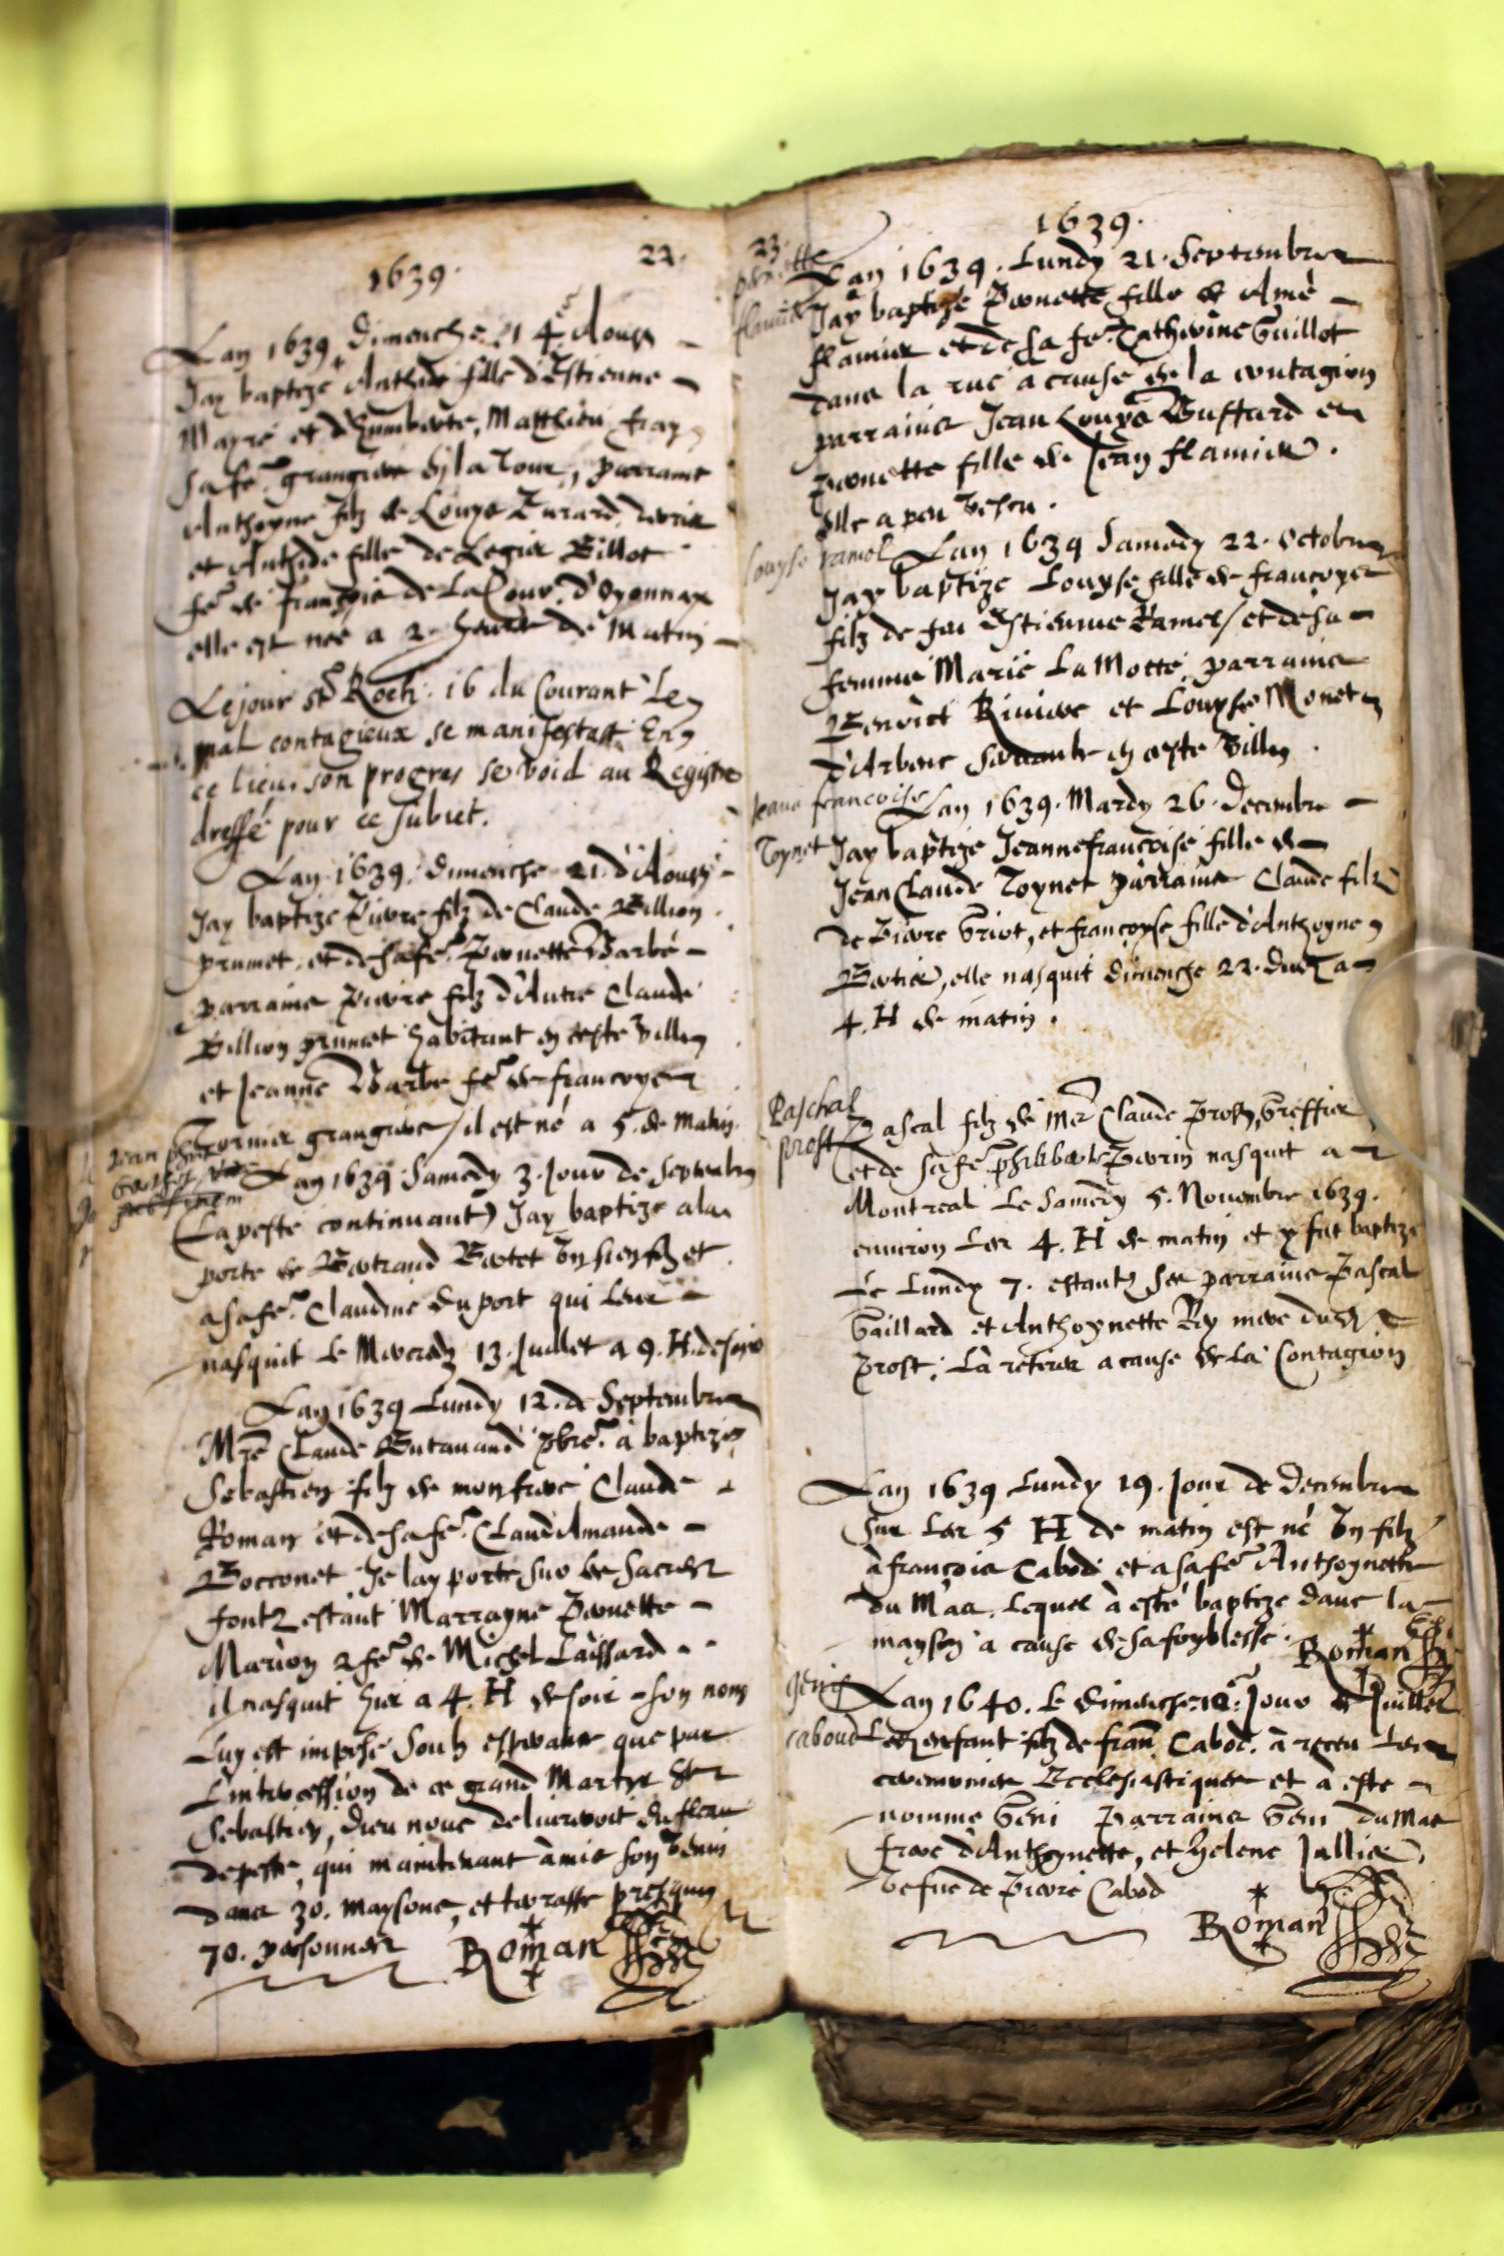 1639. 22.
Lan 1639 dimenche 14 Aoust
Jay baptize Anthide fille d'Estienne
Mayre et d'humberte, Matthieu fray
sa fe. grangiere de la Tour, parrains
Anthoyne filz de Louys
et Anthide fille de Legier Billot
fe. de françois de La Cour d'Oyonnax
elle est née a 2. heures de Matin
Le jour st Roch. 16 du Courant Le
mal contagieux se manifestast En
ce lieu. son progres se void au Registre
dressé pour ce subiet.
Lan 1639. dimenche 21. d'Aoust
Jay baptize Pierre filz de Claude Billion
prumet. et de sa fe. Pernette Barbe
parrains Pierre filz d'Autre Claude
Billion prumet habitant en ceste ville
et Jeanne Barbe fe. de francoys
fornier grangiere / il est né a 5. de Matin.
Jean
Lan 1639 Samedy 3. jour de Septembre
(La peste continuant) Jay baptize a la
porte de Bertrand Bertet Un sien filz et
a sa fe. Claudine du port qui leur
nasquit Le Mercredy 13. Juillet a 9. H. de soir
Lan 1639 Lundy 12. de Septembre
Mre Claude Butavand pbre. à baptizé
Sebastien filz de mon frere Claude
Roman et de sa fe. Claud Amande
Bocconet Je lay porté sur les sacrez
fontz estant Marrayne Pernette
Marion 2 fe. de Michel Laissard
il nasquit hier a 4. H de soir - son nom
Luy est imposé soub esperance que par
Lintercession de ce grand Martyr St
Sebastien, dieu nous delivreroit du fleau
de peste, qui maintenant à mis son venin
dans 30. maysons, et terrassé presque
70. personnes Roman
23. 1639.
pernette
flamier
Lan 1639. Lundy 21. Septembre
Jay baptizé Pernette fille de Amé
flamier et de sa fe. Catherine Guillot
dans la rue a cause de la contagion
parrains Jean Louys Buffard et
pernette fille de Jean flamier.
Elle a peu vescu.
Louyse ramel
Lan 1639 Samedy 22. Octobre
Jay baptize Louyse fille de francoys
filz de feu Estienne Ramel / et de sa
femme Marie La Motte. parrains
Benoict Riviere et Louyse Monet
d'Arbent servante en ceste ville.
Jeane francoise
Toynet
Lan 1639. Mardy 26. decembre
Jay baptize Jeannefrancoise fille de
Jean Claude Toynet parrains Claude filz
de Pierre Griot, et francoyse fille d'Anthoyne
elle nasquit dimenche 22. dud. a
4. H de matin.
Paschal
prost
Pascal filz de Mre Claude Prost, Greffier
et de sa fe. philiberte Perrin nasquit a
Montreal Le Samedy 5. Novembre 1639.
environ Les 4. H de matin et y fut baptizé
Le Lundy 7. estantz ses parrains Pascal
Gaillard et Anthoynette Rey mere dud.
Prost. Là retirez a cause de La Contagion
Lan 1639 Lundy 19. jour de decembre
sur Les 5 H de matin est né Un filz
à françois Cabod et a sa fe. Anthoynette
du Mas. Lequel à esté baptize dans la
mayson a cause de sa foyblesse. Roman
Geni
caboud
Lan 1640. Le dimenche jour de Juillet
enfant filz de fran. Cabod. à receu Les
ceremonies Ecclesiastiques et à esté
nommé Geni Parrains Geni du Mas
frere d'Anthoynette, et helene Jallier
vefue de Pierre Cabod
Roman